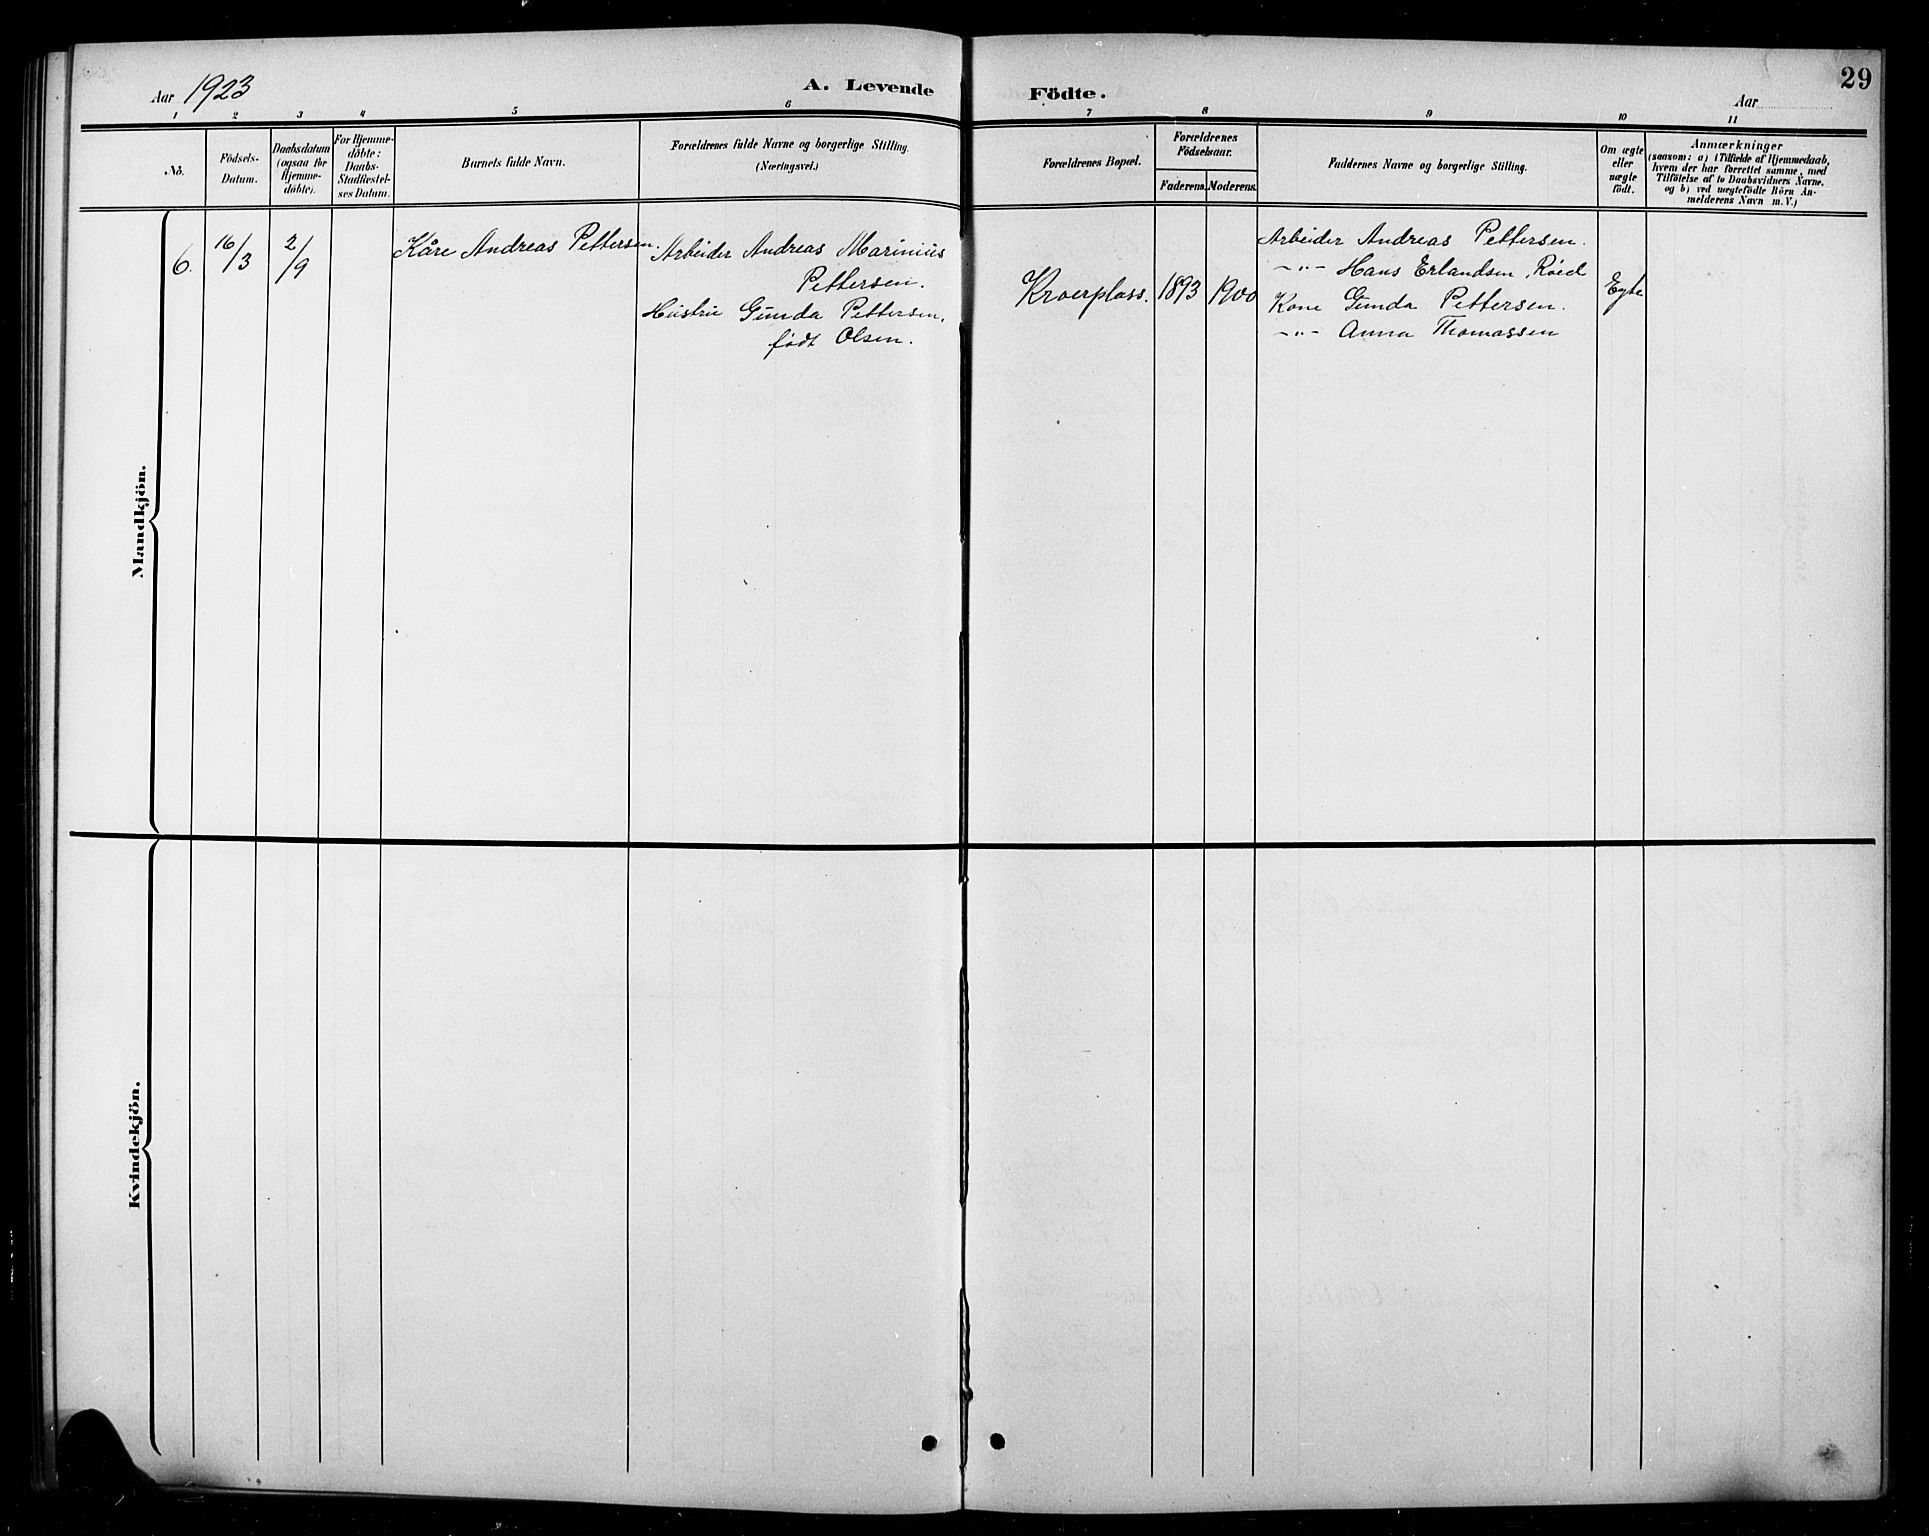 Aar 1923
A. Levende Födte.
Aar
29
1 2 3 4 5 6 7 8 9 10 11
No.
Födsels-
Datum.
Daabsdatum
(ogsaa for
Hjemme-
döbte).
For Hjemme-
döbte:
Daabs-
Stadfestel-
ses Datum.
Barnets fulde Navn.
Forældrenes fulde Navne og borgerlige Stilling.
(Næringsvei.)
Forældrenes Bopæl.
Forældrenes
Födselsaar.
Faderens. Moderens.
Faddernes Navne og borgerlige Stilling.
Om ægte
eller
uægte
født.
Anmærkninger
(saasom: a) i Tilfælde af Hjemmedaab,
hvem der har forrettet samme, med
Tilföielse af to Daabsvidners Navne.
og b) ved uægtefödte Börn An-
melderens Navn m. V.)
Mandkjön.
6.
16/3
2/9
Kåre Andreas Pettersen.
Arbeider Andreas Marinius
Pettersen.
Hustru Gunda Pettersen,
født Olsen.
Kroerplass.
1893
1900
Arbeider Andreas Pettersen.
-"- Hans Erlandsen, Röed
Kone Gunda Pettersen.
-"- Anna Thomassen
Egte
Kvindekjön.